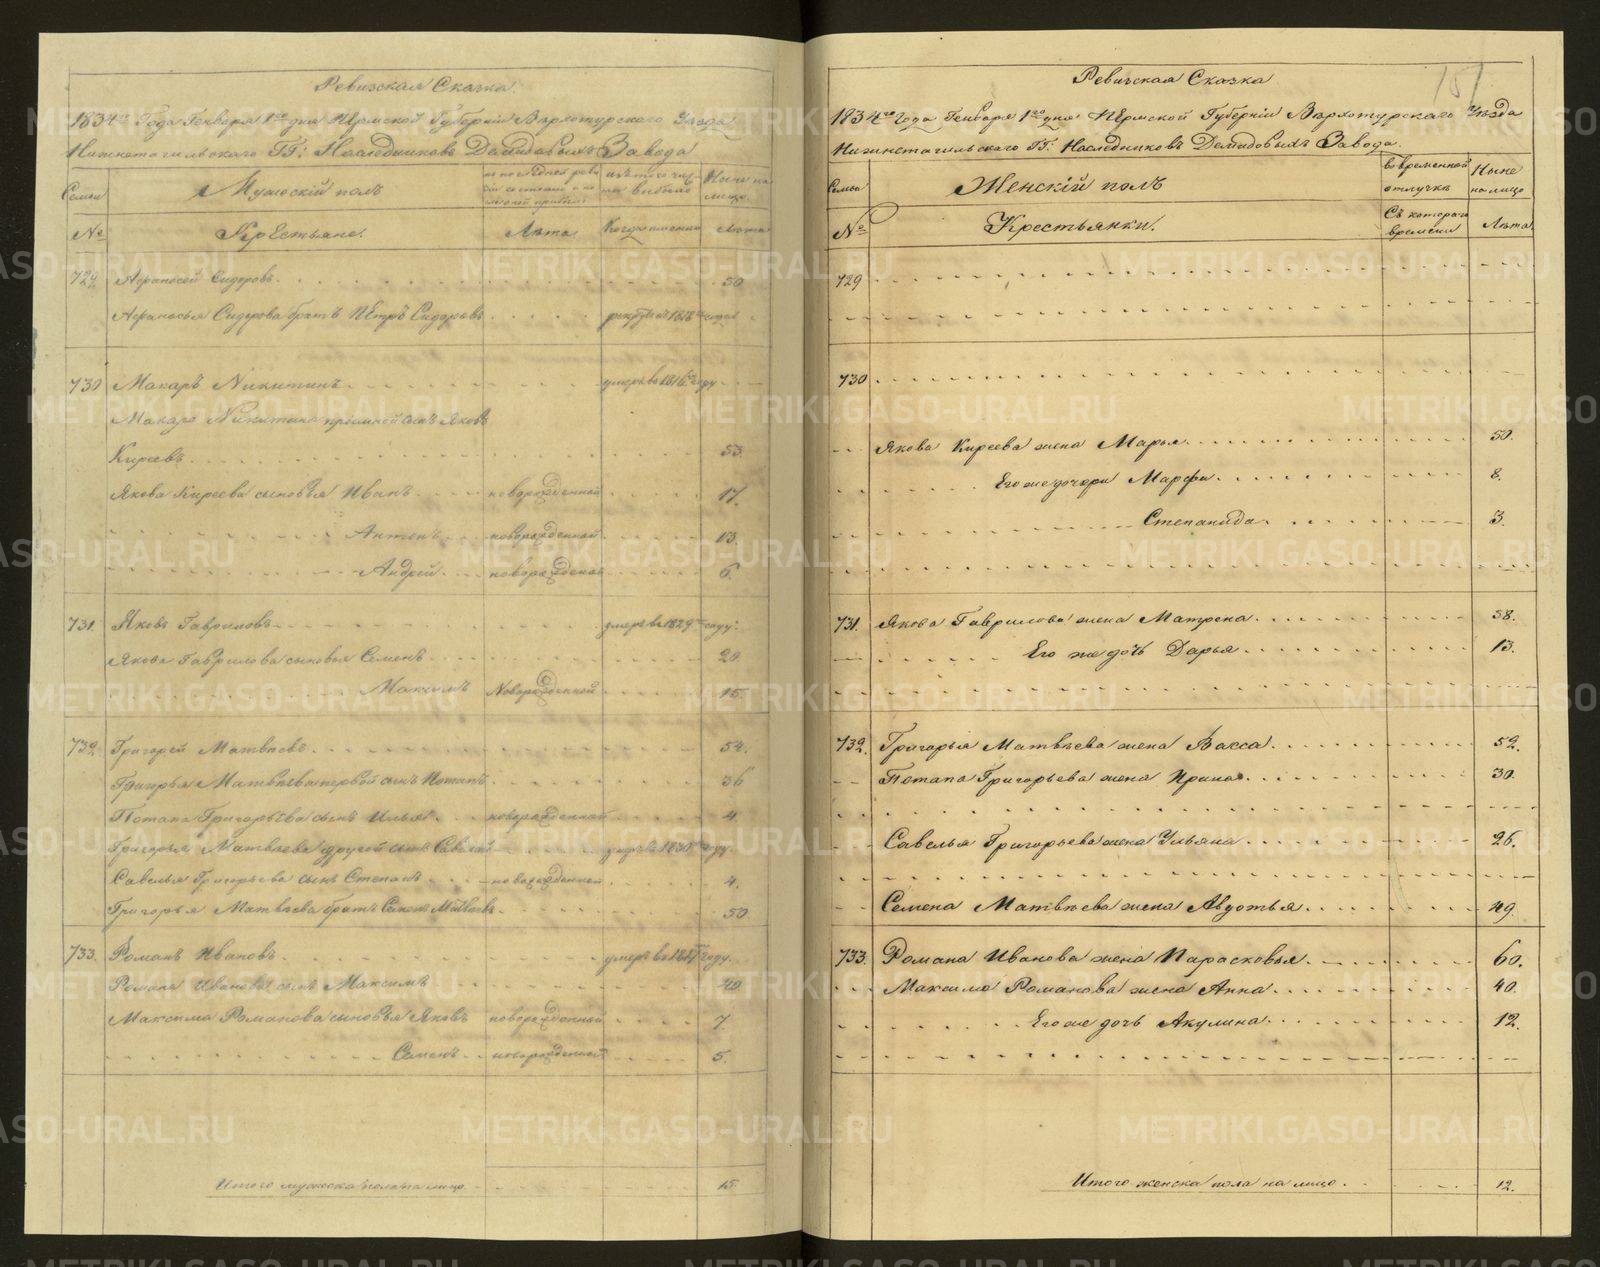 Ревизская Сказка
1834го Года Генваря 1го дня Пермской Губерніи Верхотурского Уезда
Нижнетагильского ГГ: Наследниковъ Демидовыхъ Завода
Семьи
Мужескій полъ
по последней реви
зіи состояло и по
слѣ оной прибыло
изъ того чис
ла выбыло
Ныне на
лицо
№
Крестьяне.
Лѣта
Когда именно
Лѣта
729 Афанасей Сидоровъ. 50
Афанасья Сидорова братъ Петръ Сидоровъ.
730 Макаръ Никитинъ. умеръ въ 1816 году
Макара Никитина пріемной сынъ Яковъ
Киреевъ. 53
Якова Киреева сыновья Иванъ новорожденной 17.
Антонъ новорожденной 13.
Андрей новорожденной 6.
731. Яковъ Гавриловъ умеръ въ 1829 году.
Якова Гаврилова сыновья Семенъ 20.
Максимъ Новорожденной 15.
732. Григорей Матвѣевъ. 54.
Григорья Матвѣева первой сынъ Потапъ. 36
Потапа Григорьева сынъ Илья. новорожденной 4
Григорья Матвѣева другой сынъ Савелей умеръ въ 1830 году.
Савелья Григорьева сынъ Степанъ новорожденной 4.
Григорья Матвѣева братъ Семенъ Матвѣевъ. 50
733. Романъ Ивановъ. умеръ въ году.
Романа Иванова сынъ Максимъ 40.
Максима Романова сыновья Яковъ новорожденной 7
Семенъ новорожденной 5.
Итого мужеска пола на лицо 15.
Ревизская Сказка
151
1834го Года Генваря 1го дня Пермской Губерніи Верхотурского Уезда
Нижнетагильского ГГ. Наследниковъ Демидовыхъ Завода.
Семьи
Женскій полъ
во временной
отлучке
Ныне
на лицо
№
Крестьянки.
Съ котораго
времени
Лѣта
729
730
Якова Киреева жена Марья. 50.
Его же дочери Марфа. 8.
Степанида. 3.
731. Якова Гаврилова жена Матрена. 38.
Его же дочь Дарья. 13.
732. Григорья Матвѣева жена Васса. 52.
Потапа Григорьева жена Ирина. 30.
Савелья Григорьева жена Ульяна 26.
Семена Матвѣева жена Авдотья. 49.
733. Романа Иванова жена Парасковья. 60.
Максима Романова жена Анна. 40.
Его же дочь Акулина. 12.
Итого женска пола на лицо. 12.
METRIKI.GASO-URAL.RU